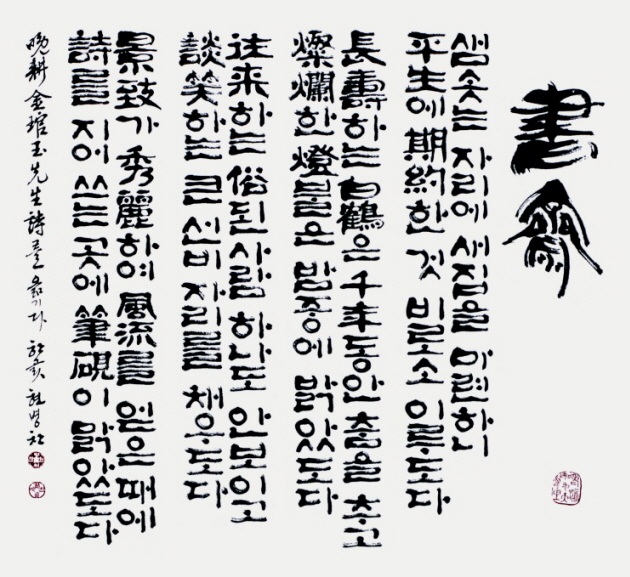 書齋
샘솟는 자리에 새집을 마련하니
平生에 期約한 것 비로소 이루도다
長壽하는 白鶴은 千年동안 춤을 추고
燦爛한 燈불은 밤중에 밝았도다
往来하는 俗된 사람 하나도 안보이고
談笑하는 큰 선비 자리를 채우도다
景致가 秀麗하여 風流를 얻은 때에
詩를 지어 쓰는 곳에 筆硯이 맑았도다
晩耕 金琯玉先生詩를 옮기다 현병찬